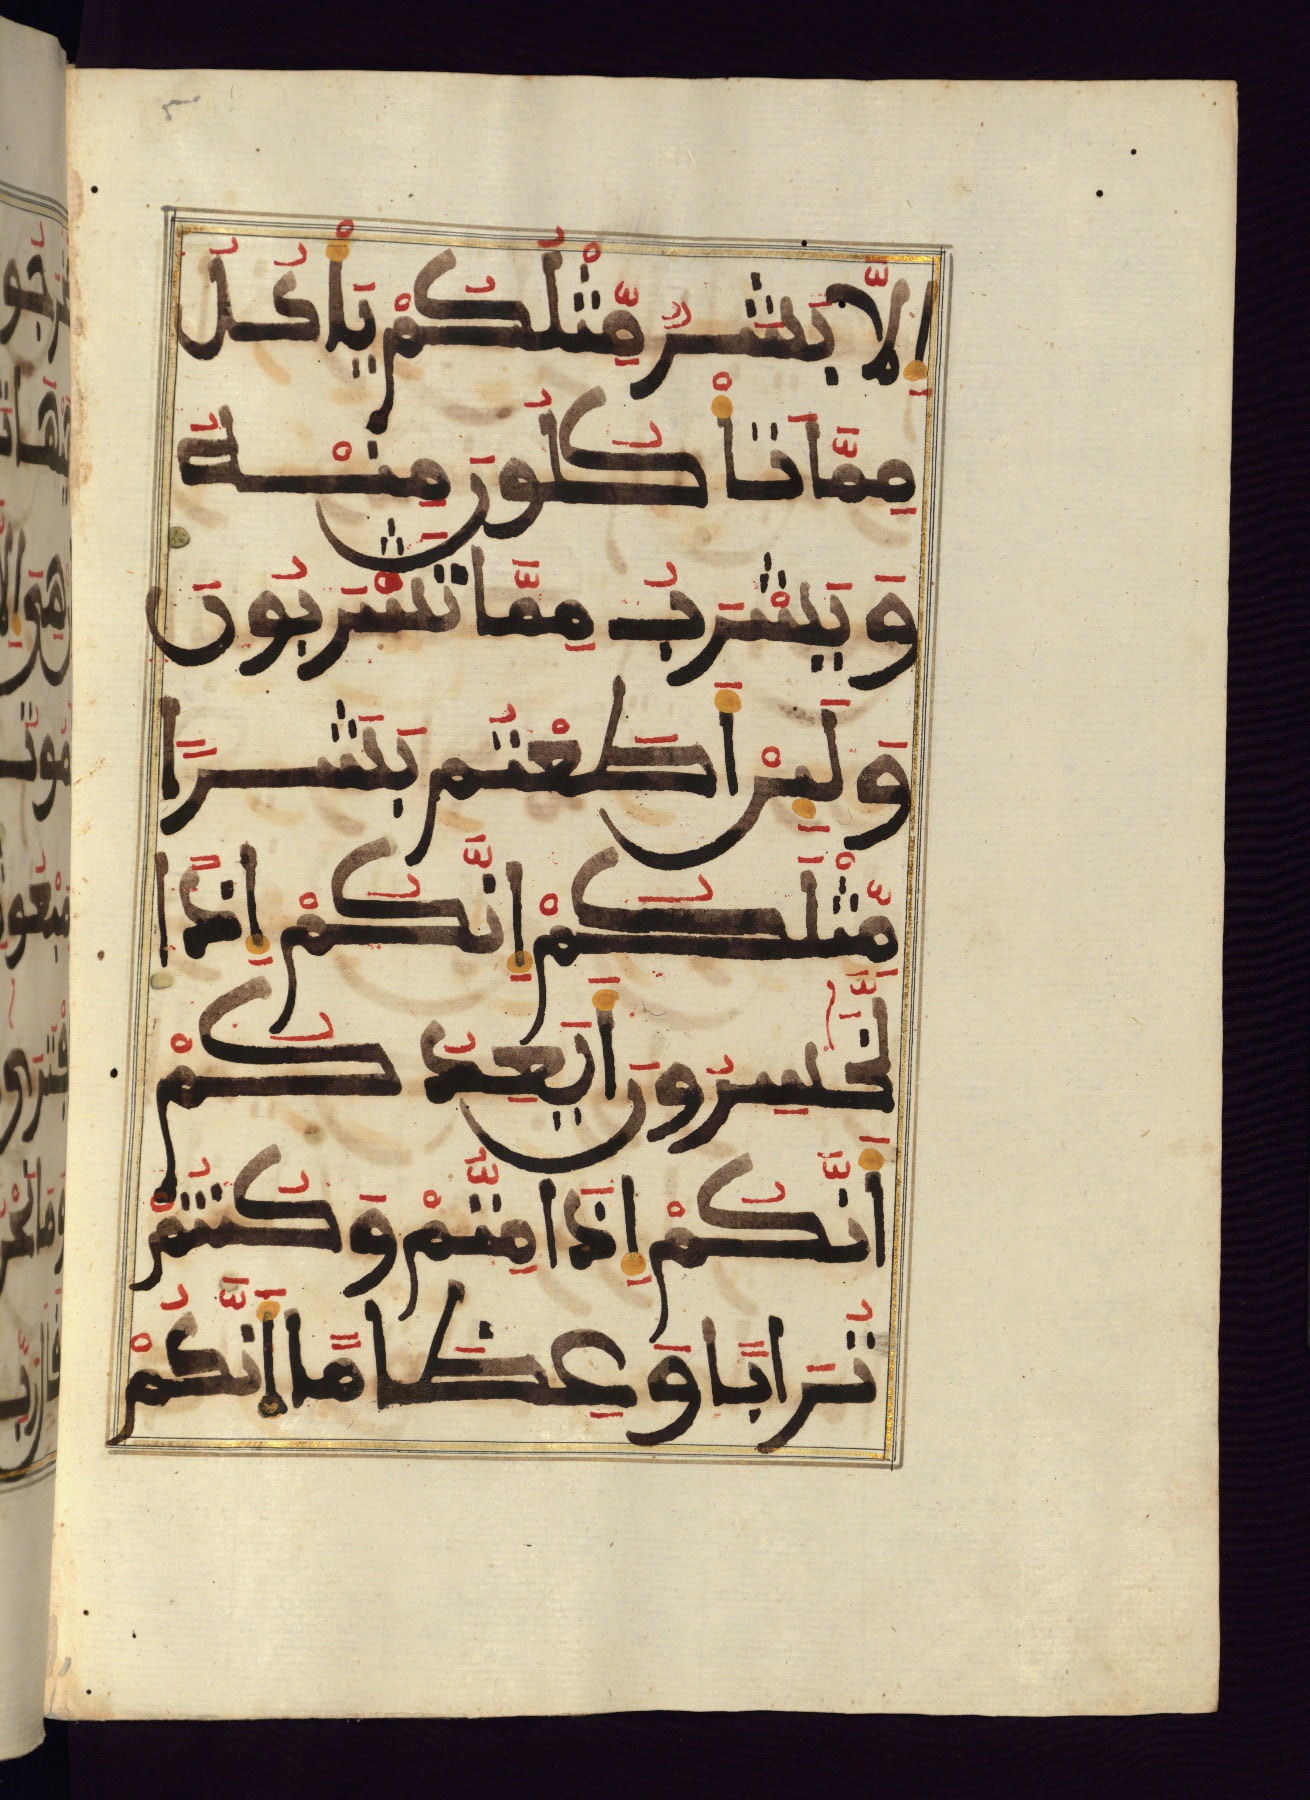 إِلَّا بَشَرٌ مِّثْلُكُمْ يَأْكُلُ
مِمَّا تَأْكُلُونَ مِنْهُ
وَيَشْرَبُ مِمَّا تَشْرَبُونَ
وَلَئِنْ أَطَعْتُم بَشَرًا
مِّثْلَكُمْ إِنَّكُمْ إِذًا
لَّخَٰسِرُونَ أَيَعِدُكُمْ
أَنَّكُمْ إِذَا مِتُّمْ وَكُنتُمْ
تُرَابًا وَعِظَامًا أَنَّكُمْ